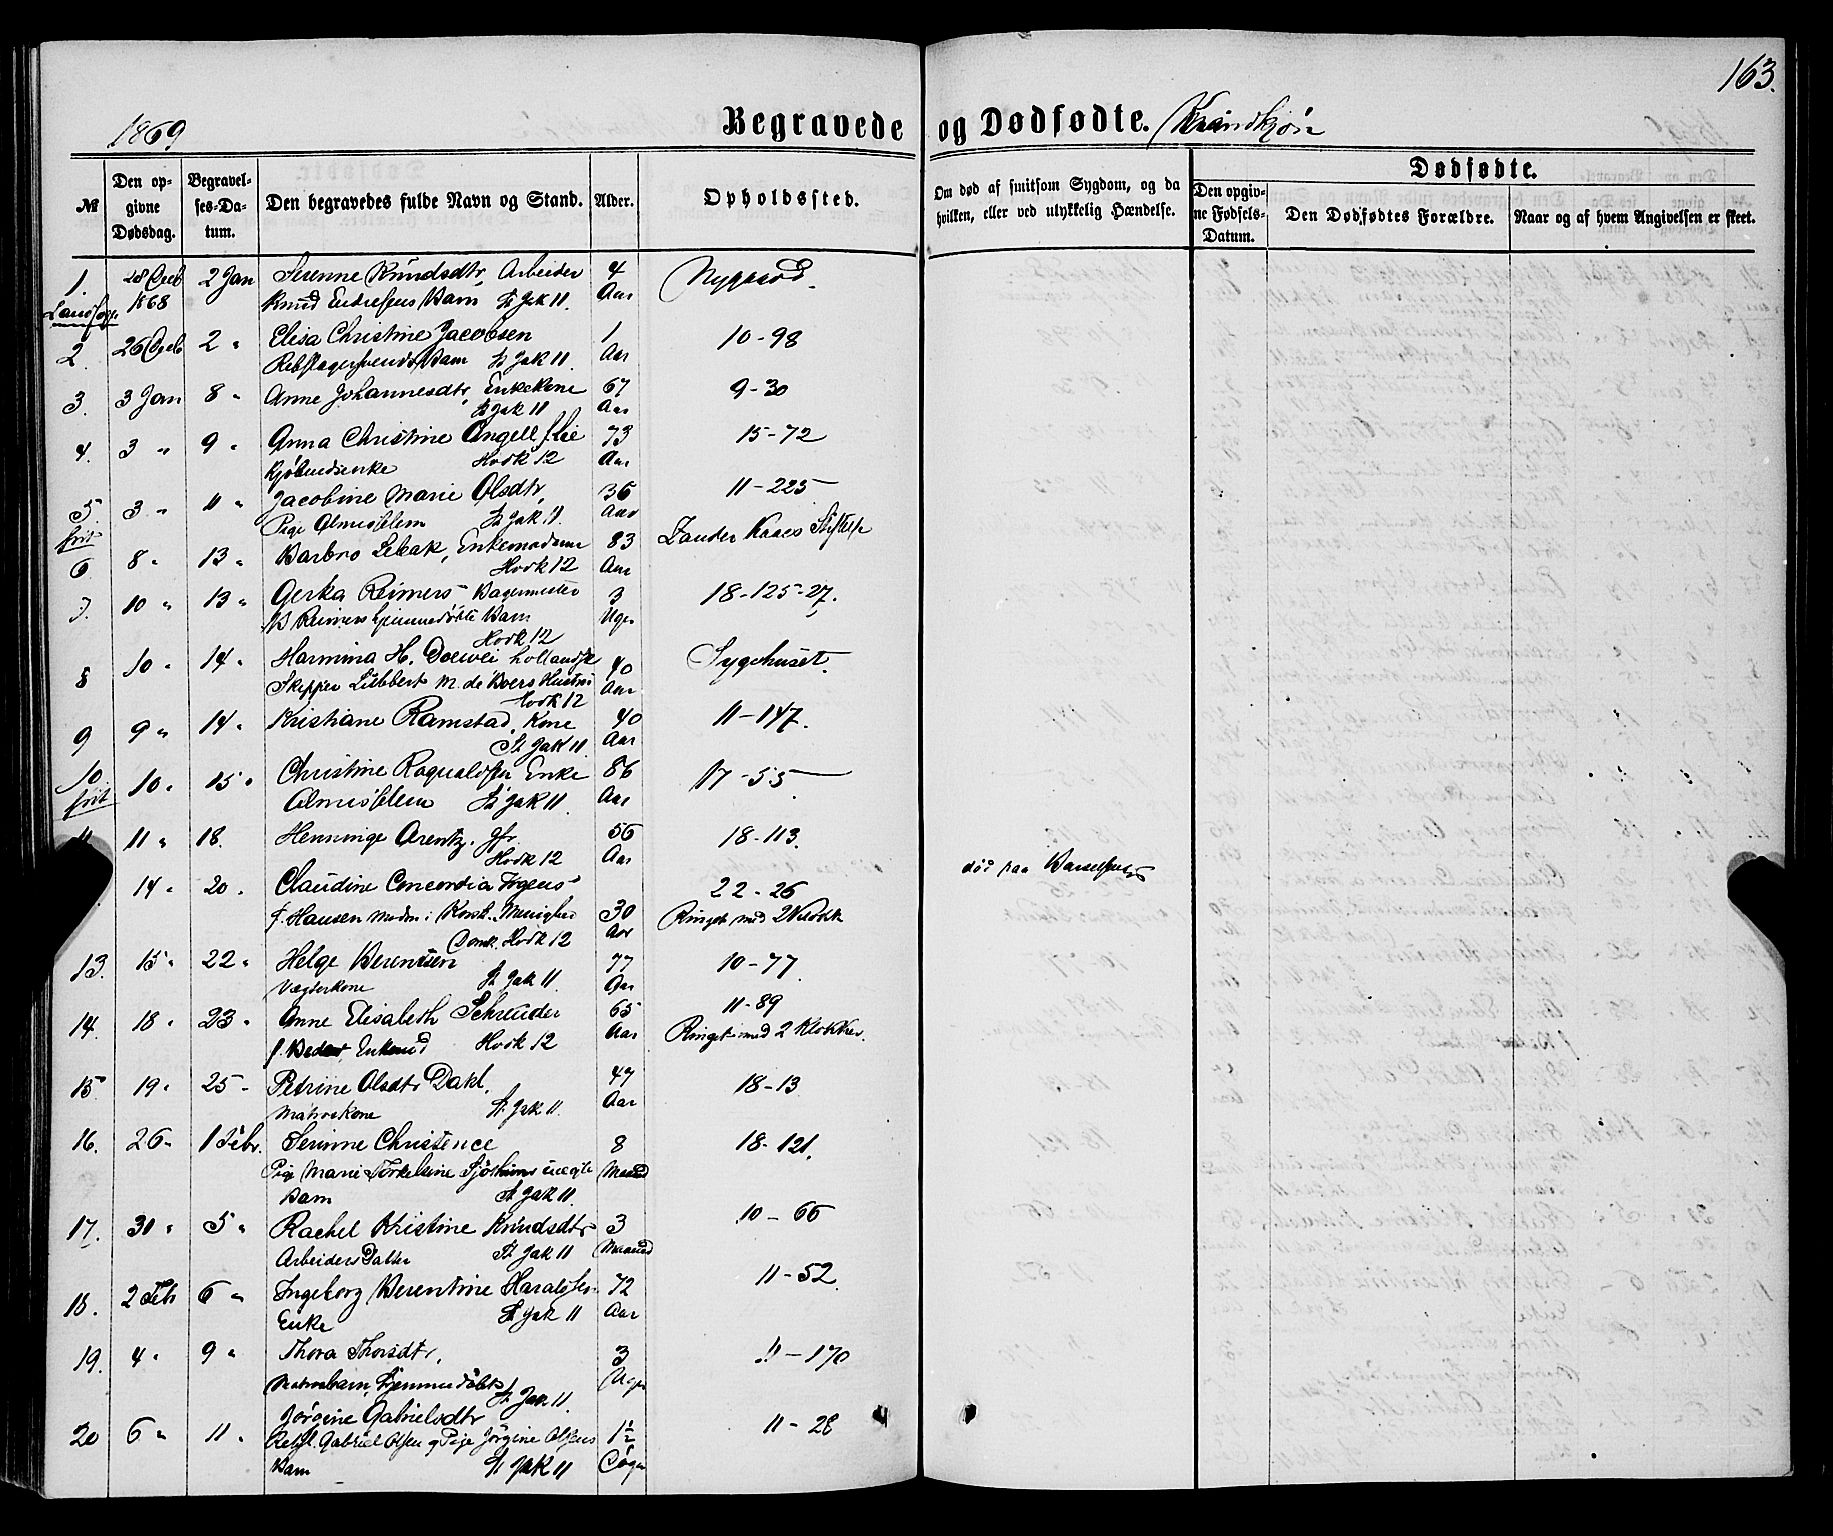 163.
1869
Begravede og Dødfødte. Kvindkjøn
№
Den opgivne Dødsdag.
Begravelses-Datum.
Den begravedes fulde Navn og Stand.
Alder.
Opholdssted.
Om død af smitsom Sygdom, og da hvilken, eller ved ulykkelig Hændelse.
Dødfødte.
Den opgivne Fødsels-Datum.
Den Dødfødtes Forældre.
Naar og af hvem Angivelsen er skeet.
1. 28 Decb 2 Jan Serenne Knudsdtr, Arbeider 4 Nygaard
1868 Knud Endresens Barn, St Jak 11. Aar
2. 26 Decb 2 " Elisa Christine Jacobsen 1 10-98
Barn St Jak 11 Aar
3. 3 Jan 8 " Anne Johannesdtr, Enkekone 67 9-30
St Jak 11 Aar
4. 3 " 9 " Anna Christine Angell f. Lie 73 15-72
Kjøbmdsenke Hovk 12 Aar
5. 3 " 11 " Jacobine Marie Olsdtr, 36 11-225
frit Pige Almislem St Jak 11. Aar
6 8 " 13 " Barbro Lebak, Enkemadame 83 Zander Kaaes Stiftelse
Hovk 12 Aar
7. 10 " 13 " Gerka Reimers Bagermester 3 18-125-27.
B Reimers hjemmedøbte Barn Uger
Hovk 12
8 10 " 14 " Harmina H. Doewei hollandsk 40 Sygehuset.
Skipper Lübbert M. de Boers Hustru Aar
Hovk 12
9 9 " 14 " Kristiane Ramstad, Kone 40 11-147.
St Jak 11 Aar
10 10 " 15 " Christine Enke 86 17-55
frit Almislem St Jak 11. Aar
11 11 " 18. Henninge Arentz, Jfr. 56 18-113.
Hovk 12 Aar
14 " 20. Claudine Concordia 22-26 død paa
f. Hansen Madm i Korsk. Menighed 30 Ringet med 2 Klokk
Domk. Hovk 12 Aar
13. 15 " 22 " Helge Berentsen 77 10-77
Vægterkone St Jak 11 Aar
14. 18 " 23 " Anne Elisabeth Schreuder 65 11-89
f. Hovk 12 Aar Ringet med 2 Klokker.
15 19 " 25 " Petrine Olsdtr Dahl. 47 18-13
Matroskone St Jak 11. Aar
16. 26 " 1 Febr. Serinne Christence 8 18-121.
Pige Marie Torkelsine uægte Maaned
Barn St Jak 11
17. 30 " 5 " Rachel Kristine Knudsdtr 3 10-66
Arbeiders Datter St Jak 11 Maaned
18. 2 Feb 6 " Ingeborg Berentine Haraldsen 72 11-52.
Enke St Jak 11 Aar
19. 4 " 9 " Thora Thorsdtr, 3 11-170
Matrosbarn, hjemmedøbt St Jak 11. Uger
20 6 " 11 " Jørgine Gabrielsdtr 1½ 11-28
Gabriel Olsen og Pige Jørgine Olsens
Barn St Jak 11